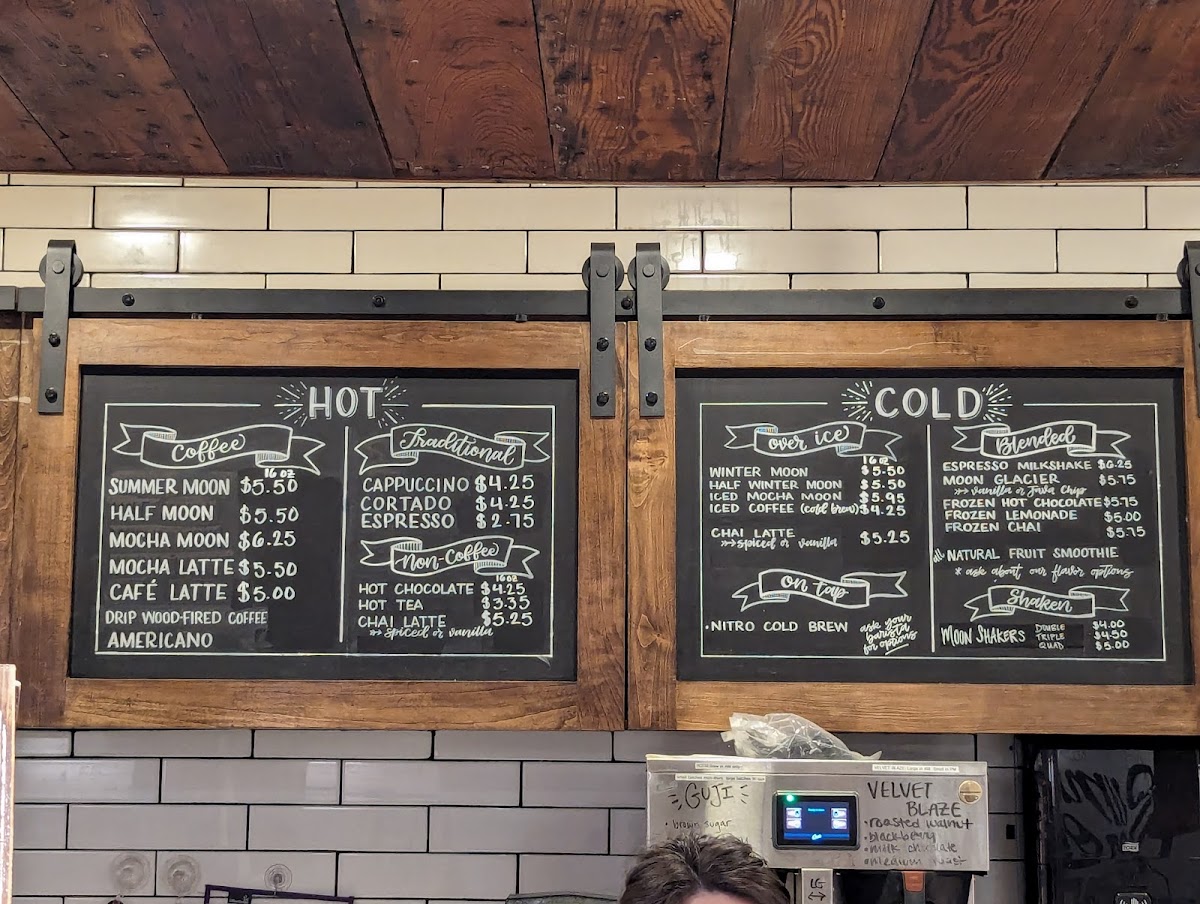 HOT
Coffee
16 oz
SUMMER MOON $5.50
HALF MOON $5.50
MOCHA MOON $6.25
MOCHA LATTE $5.50
CAFÉ LATTE $5.00
DRIP WOOD-FIRED COFFEE
AMERICANO
Traditional
CAPPUCCINO $4.25
CORTADO $4.25
ESPRESSO $2.75
Non-Coffee
16oz
HOT CHOCOLATE $4.25
HOT TEA $3.35
CHAI LATTE $5.25
»» spiced or vanilla
COLD
over ice
16 oz
WINTER MOON $5.50
HALF WINTER MOON $5.50
ICED MOCHA MOON $5.95
ICED COFFEE (cold brew) $4.25
CHAI LATTE $5.25
»» spiced or vanilla
on tap
•NITRO COLD BREW
ask your
barista
for options
Blended
ESPRESSO MILKSHAKE $6.25
MOON GLACIER $5.75
»» vanilla or Java Chip
FROZEN HOT CHOCOLATE $5.75
FROZEN LEMONADE $5.00
FROZEN CHAI $5.75
NATURAL FRUIT SMOOTHIE
* ask about our flavor options
Shaken
MOON SHAKERS DOUBLE $4.00
TRIPLE $4.50
QUAD $5.00
GUJI
• brown sugar
VELVET
BLAZE
•roasted walnut
•blackberry
•milk chocolate
•medium roast
LG